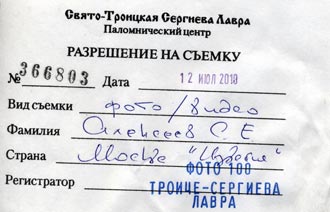 Свято-Троицкая Сергиева Лавра
Паломнический центр
РАЗРЕШЕНИЕ НА СЪЕМКУ
№ 366803 Дата 12 ИЮЛ 2010
Вид съемки фото/видео
Фамилия Алексеев С. Е
Страна Москва "Известия"
ФОТО 100
Регистратор ТРОИЦЕ-СЕРГИЕВА
ЛАВРА